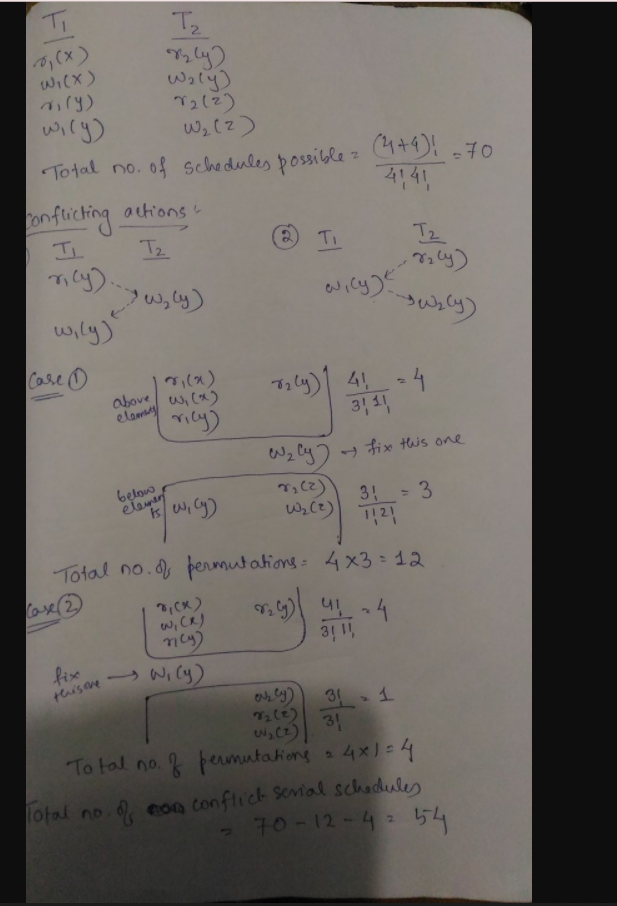 T1 T2
r1(x) r2(y)
w1(x) w2(y)
r1(y) r2(z)
w1(y) w2(z)
Total no. of schedules possible = (4+4)! / 4! 4! = 70
Conflicting actions :-
T1 T2
r1(y)
w2(y)
w1(y)
② T1 T2
r2(y)
w1(y)
w2(y)
Case ①
above elements
r1(x) r2(y)
w1(x)
r1(y)
4! / 3! 1! = 4
w2(y) → fix this one
below elements
w1(y) r2(z)
w2(z)
3! / 1! 2! = 3
Total no. of permutations = 4 x 3 = 12
Case ②
r1(x) r2(y)
w1(x)
r1(y)
4! / 3! 1! = 4
fix this one → w1(y)
w2(y)
r2(z)
w2(z)
3! / 3! = 1
Total no. of permutations = 4 x 1 = 4
Total no. of conflict serial schedules
= 70 - 12 - 4 = 54